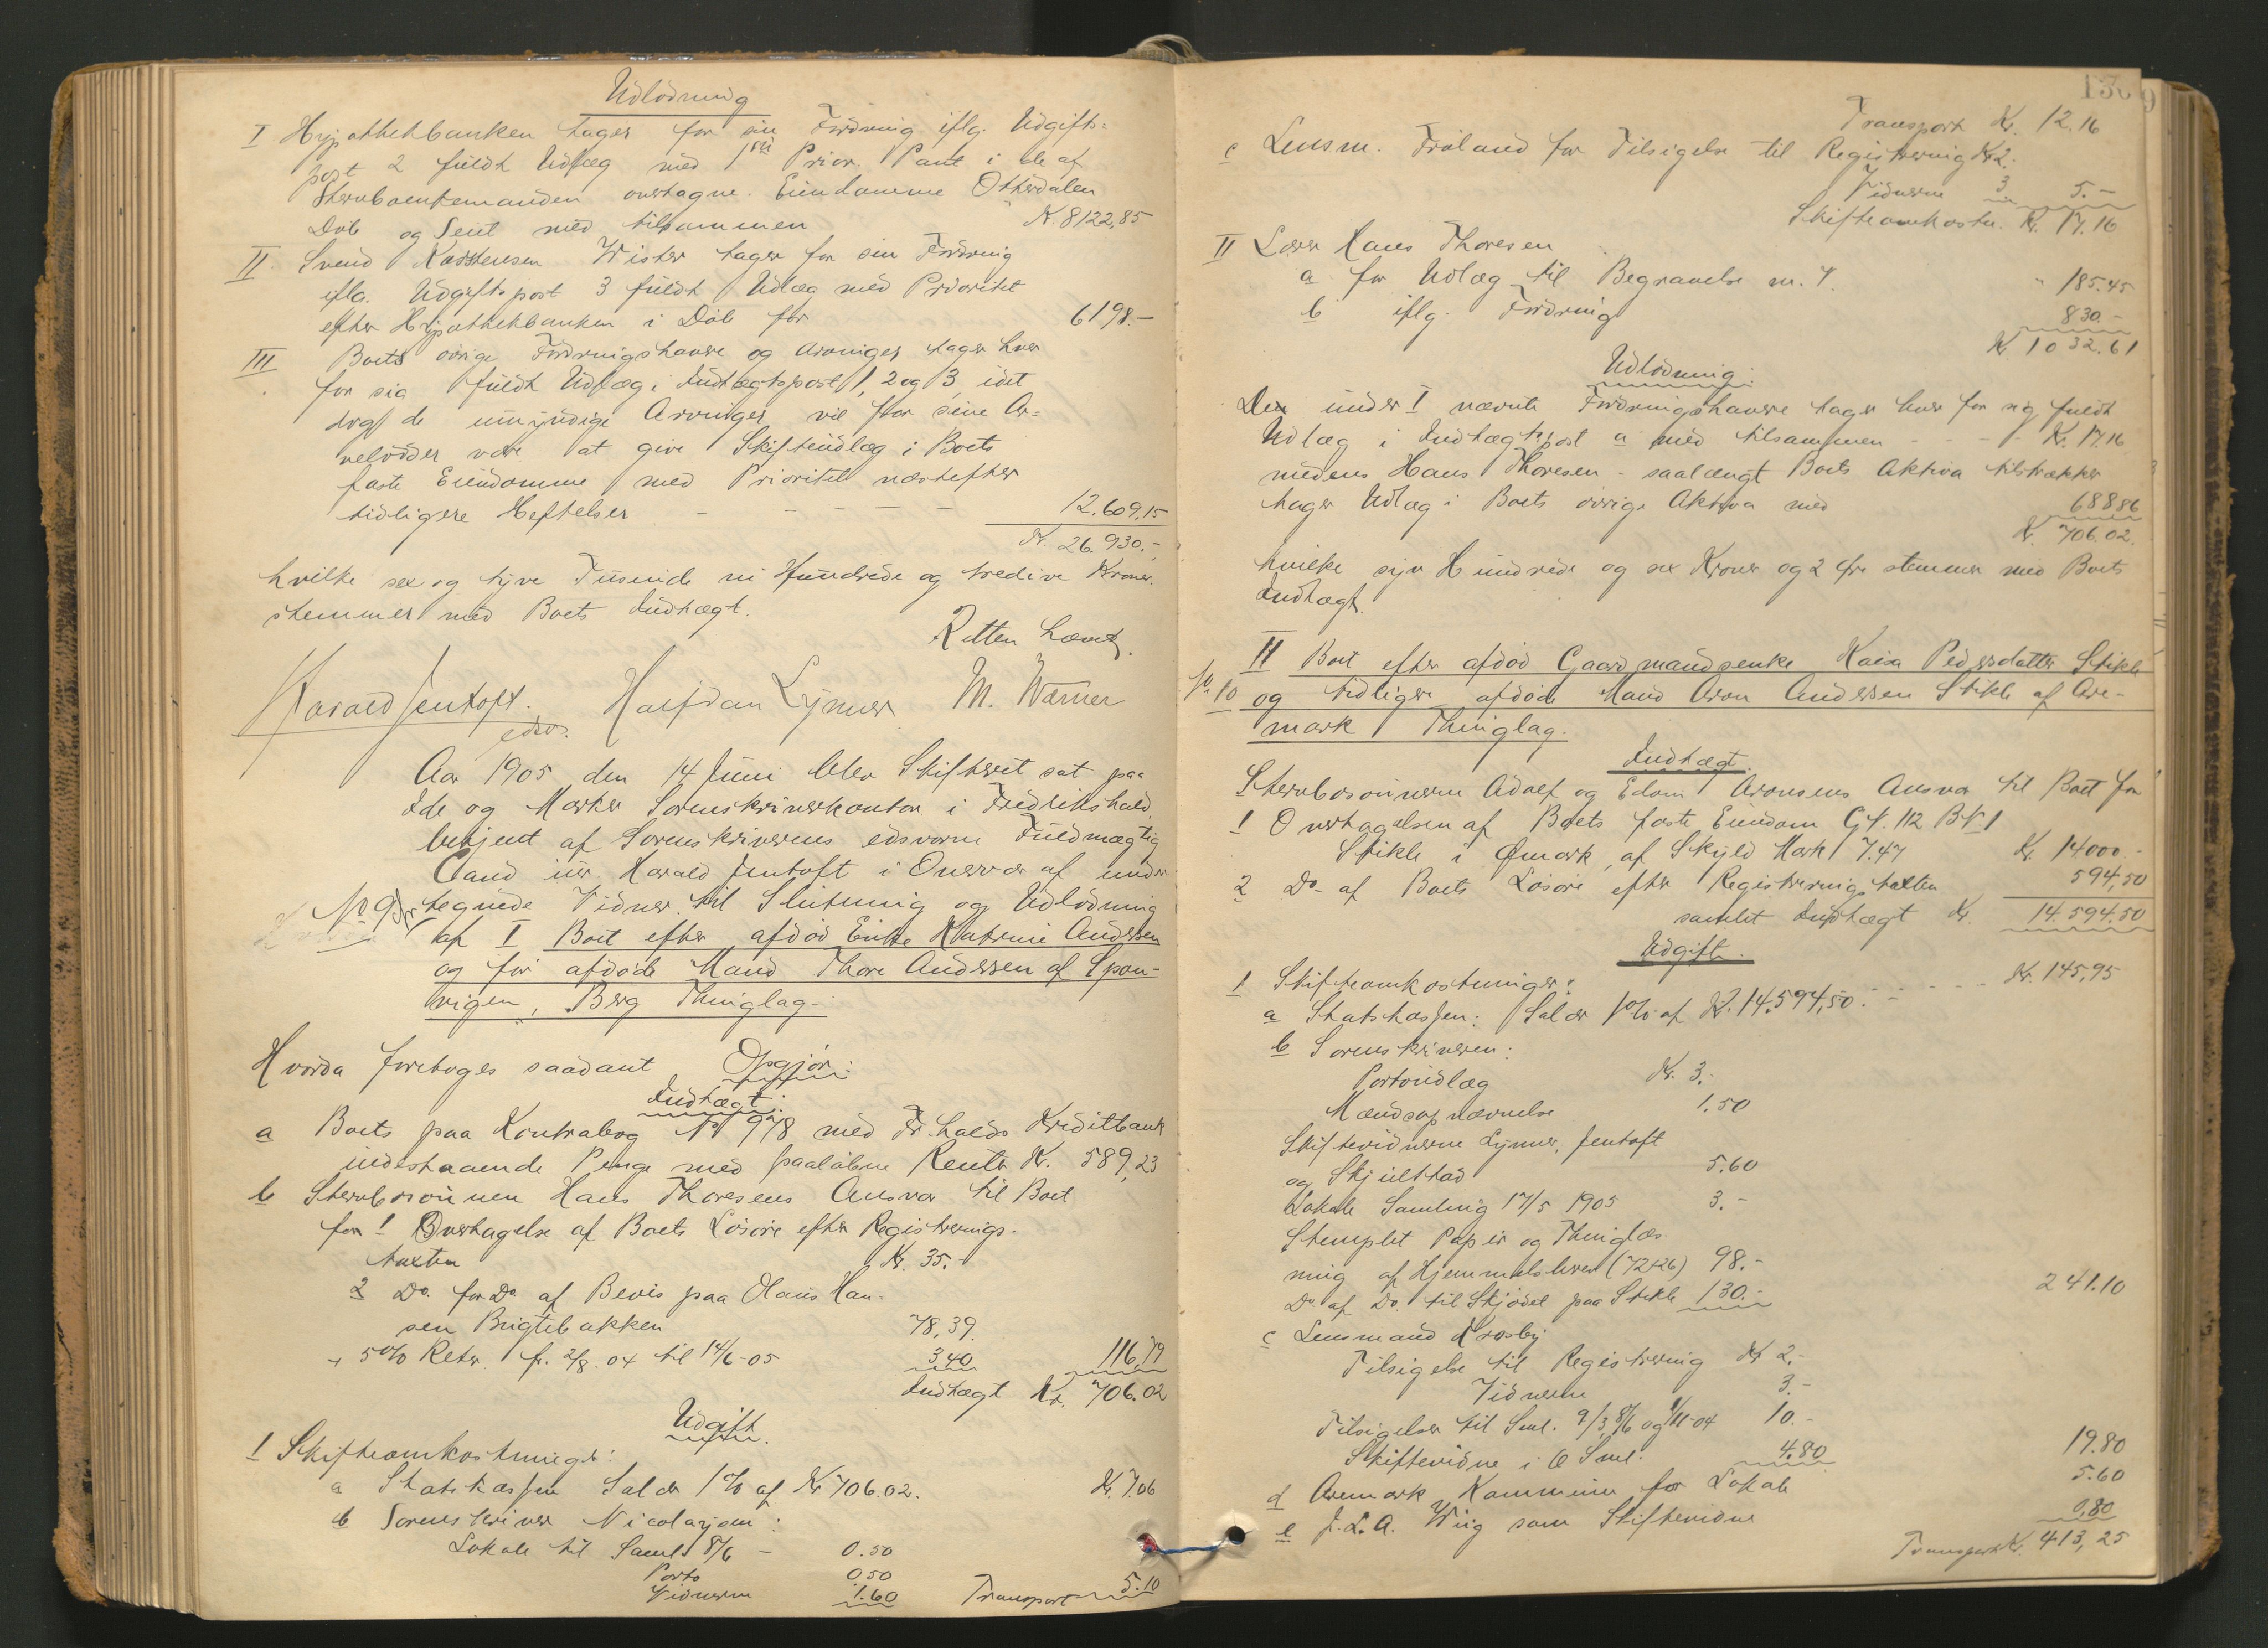 Udlodning
I Hypothekbanken tager for sin Fordring iflg. Udgifts=
post 2 fuldt Udlæg med 1ste Prior. Pant i de af
Stervboenkemanden overtagne Eiendomme Otterdalen
Døle og Seut med tilsammen Kr. 8122,85
II. Svend Karstensen Wister tager for sin Fordring
iflg. Udgiftspost 3 fuldt Udlæg med Prioritet
efter Hypothekbanken i Døle for 6198.-
III Boets øvrige Fordringshavere og Arvinger tager hver
for sig fuldt Udlæg i Indtægtspost 1, 2 og 3, idet
dog de umyndige Arvinger vil for sine Ar=
velodder være at give Skifteudlæg i Boets
faste Eiendomme med Prioritet næstefter
tidligere Heftelser - - - - - 12.609,15
Kr. 26.930.-
hvilke sex og tyve Tusinde ni Hundrede og tredive Kroner
stemmer med Boets Indtægt.
Retten hævet.
Harald Jentoft. Halfdan Lynner M. Warner
edsv.
Aar 1905 den 14 Juni blev Skifteret sat paa
Ide og Marker Sorenskriverkontor i Fredrikshald,
betjent af Sorenskriverens edsvorne Fuldmægtig
Cand jur. Harald Jentoft i Overvær af under-
No 9 tegnede Vidner til Slutning og Udlodning
af I Boet efter afdød Enke Katrine Andersen
og før afdøde Mand Thore Andersen af Spon-
vigen, Berg Thinglag.-
Hvorda foretoges saadant Opgjør:
Indtægt:
a Boets paa Kontrabog No 978 med Fr.halds Kreditbank
indestaaende Penge med paaløbne Renter Kr. 589,23
b Stervbosønnen Hans Thoresens Ansvar til Boet
for 1 Overtagelse af Boets Løsøre efter Registrerings-
taxten Kr. 35.-
2 Do. for Do af Bevis paa Olaus Han-
sen Brigtebakken 78,39.
+ 5% Rtr. fr. 2/8. 04 til 14/6-05 3,40 116,79
Indtægt Kr. 706.02
Udgift.
1 Skifteomkostninger:
a Statskassen Salær 1% af Kr 706.02. Kr. 7.06
b Sorenskriver Nicolaysen:
Lokale til Saml. 8/6 - 0.50
Porto 0.50
Vidnerne 1.60 Transport 5.10
139
Transport Kr. 12.16
c Lensm. Fröland for Tilsigelse til Registrering Kr 2.
Vidnerne 3 5.-
Skifteomkostn. Kr. 17.16
II Lærer Hans Thoresen
a for Udlæg til Begravelse m. v. " 185.45
b iflg. Fordring 830.-
Kr. 1032.61
Udlodning:
Den under I nævnte Fordringshavere tager hver for sig fuldt
Udlæg i Indtægtspost a med tilsammen - - - - Kr. 17.16
medens Hans Thoresen - saalangt Boets Aktiva tilstrækker
tager Udlæg i Boets øvrige Aktiva med 688 86
Kr. 706.02.
hvilke syv Hundrede og sex Kroner og 2 Øre stemmer med Boets
Indtægt.
II Boet efter afdød Gaardmandsenke Kaisa Pedersdatter Stikle
No 10 og tidligere afdøde Mand Aron Andersen Stikle af Are-
mark Thinglag.
Indtægt.
Stervbosønnerne Adolf og Edvin Aronsens Ansvar til Boet for
1 Overtagelsen af Boets faste Eiendom G.N. 112 B.N. 1
Stikle i Ømark, af Skyld Mark 7.47 Kr. 14000.-
2 Do- af Boets Løsøre efter Registreringstaxten 594,50
samlet Indtægt Kr. 14.594.50
Udgift.
1 Skifteomkostninger:
a Statskassen: Salær 1% af Kr. 14.594,50. - - - - - - Kr. 145,95
b Sorenskriveren:
Portoudlæg Kr. 3.-
Mændsopnævnelse 1.50
Skiftevidnerne Lynner, Jentoft
og Skjulstad 5.60
Lokale Samling 17/5 1905 3.-
Stemplet Papir og Thinglæs-
ning af Hjemmelsbrev (72+26) 98.-
Do. af Do. til Skjødet paa Stikle 130.- 241.10
c Lensmand Krosby
Tilsigelse til Registrering Kr 2.-
Vidnerne 3.-
Tilsigelser til Saml. 9/3, 8/6 og 9/11-04 10.-
Skiftevidne i 6 Saml. 4.80 19.80
d Aremark Kommune for Lokale 5.60
e J. L. A. Wiig som Skiftevidne 0,80
Transport Kr. 413,25